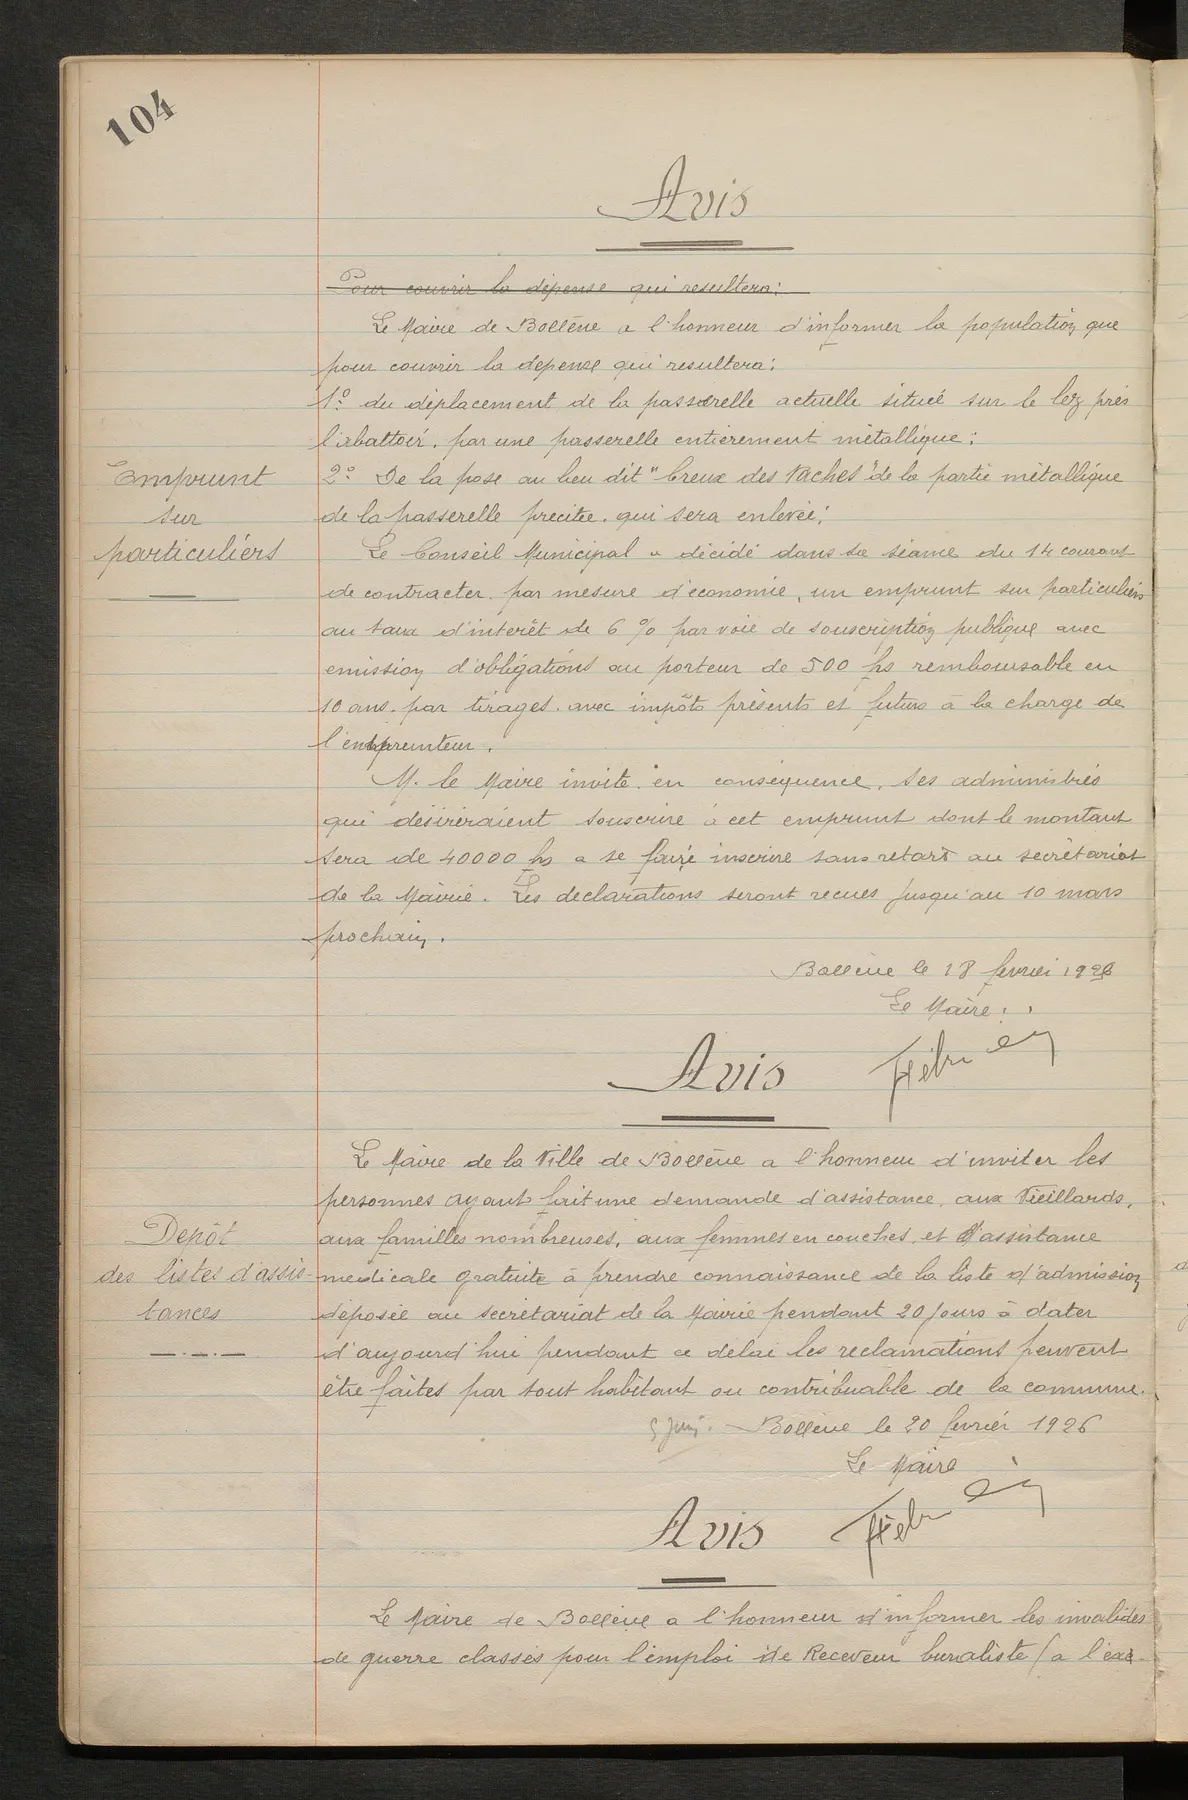 104
Avis
Pour couvrir la dépense qui resultera:
Le Maire de Bollène a l'honneur d'informer la population que
pour couvrir la depense qui resultera:
1º du déplacement de la passerelle actuelle situeé sur le lez près
l'abattoir. par une passerelle entièrement métallique;
Emprunt
sur
particuliers
2º De la pose au lieu dit "Creux des Vaches" de la partie métallique
de la passerelle precitée. qui sera enlevée;
Le Conseil Municipal a décidé dans sa séance du 14 courant
de contracter. par mesure d'économie, un emprunt sur particuliers
au taux d'interêt de 6 % par voie de souscription publique avec
emission d'obligations au porteur de 500 frs remboursable en
10 ans. par tirages. avec impôts présents et futurs à la charge de
l'emprunteur.
M. le Maire invite en conséquence, ses administrés
qui désireraient souscrire à cet emprunt dont le montant
sera de 40000 frs a se faire inscrire sans retard au secrétariat
de la Mairie. Les declarations seront recues jusqu'au 10 mars
prochain.
Bollène le 18 fevrier 1926
Le Maire:
Avis
Le Maire de la Ville de Bollène a l'honneur d'inviter les
personnes ayant fait une demande d'assistance. aux Vieillards,
aux familles nombreuses, aux femmes en couches, et d'assistance
Depôt
des listes d'assis-
tances
medicale gratuite à prendre connaissance de la liste d'admission
déposée au secrétariat de la Mairie pendant 20 jours à dater
d'aujourd'hui pendant ce délai les reclamations peuvent
être faites par tout habitant ou contribuable de la commune.
Bollène le 20 fevrier 1926
Le Maire
Avis
Le Maire de Bollène a l'honneur d'informer les invalides
de guerre classés pour l'emploi de Receveur buraliste (a l'exe-